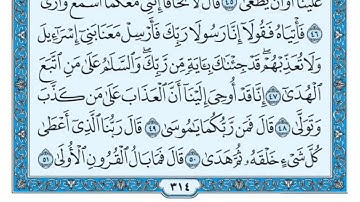 عَلَيْنَآ أَوْ أَن يَطْغَىٰ ٤٥ قَالَ لَا تَخَافَآ إِنَّنِى مَعَكُمَآ أَسْمَعُ وَأَرَىٰ
٤٦ فَأْتِيَاهُ فَقُولَآ إِنَّا رَسُولَا رَبِّكَ فَأَرْسِلْ مَعَنَا بَنِىٓ إِسْرَٰٓءِيلَ
وَلَا تُعَذِّبْهُمْ قَدْ جِئْنَٰكَ بِـَٔايَةٍ مِّن رَّبِّكَ وَٱلسَّلَٰمُ عَلَىٰ مَنِ ٱتَّبَعَ
ٱلْهُدَىٰٓ ٤٧ إِنَّا قَدْ أُوحِىَ إِلَيْنَآ أَنَّ ٱلْعَذَابَ عَلَىٰ مَن كَذَّبَ
وَتَوَلَّىٰ ٤٨ قَالَ فَمَن رَّبُّكُمَا يَٰمُوسَىٰ ٤٩ قَالَ رَبُّنَا ٱلَّذِىٓ أَعْطَىٰ
كُلَّ شَىْءٍ خَلْقَهُۥ ثُمَّ هَدَىٰ ٥٠ قَالَ فَمَا بَالُ ٱلْقُرُونِ ٱلْأُولَىٰ ٥١
٣١٤